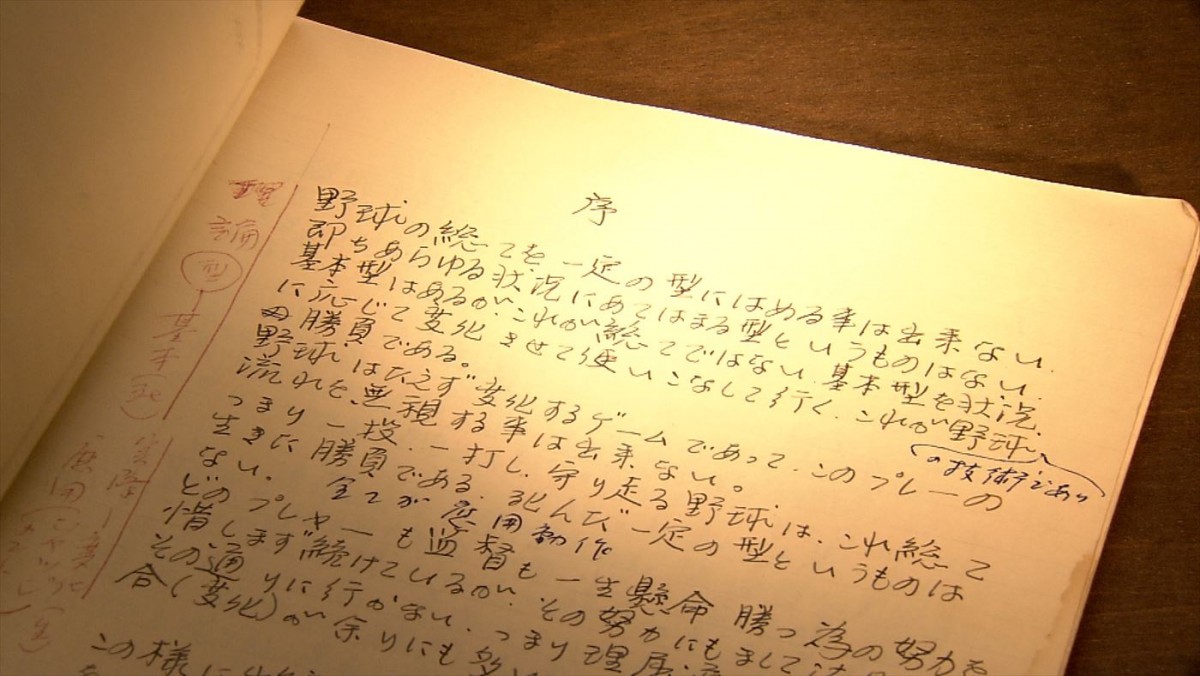 序
野球の総てを一定の型にはめる事は出来ない.
即ちあらゆる状況にあてはまる型というものはない.
基本型はあるが、これが総てではない.基本型を状況
に応じて変化させて使いこなして行く.これが野球
の技術であり
又勝負である。
野球はたえず変化するゲームであって、このプレーの
流れを無視する事は出来ない。
つまり一投、一打し、守り走る野球は、これ総て
生きた勝負である.死んだ一定の型というものは
ない。 全てが応用動作
どのプレヤーも監督も一生懸命勝つ為の努力を
惜しまず続けているが、その努力にもまして
その通りに行かない、つまり理屈
合(変化)が余りにも多い
この様に
理論
型
基本
実際
展開